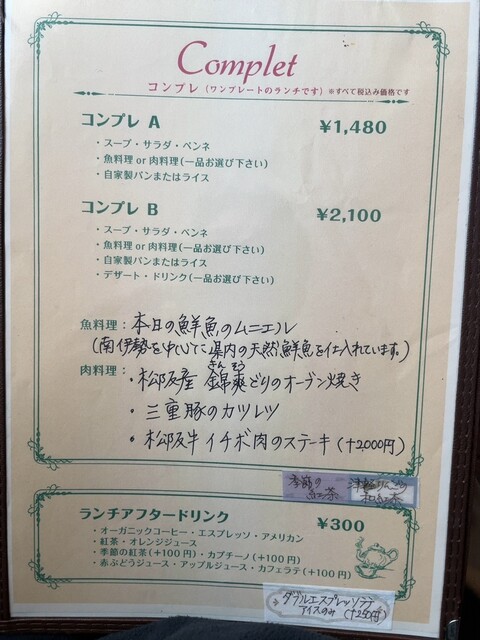 Complet
コンプレ（ワンプレートのランチです）※すべて税込み価格です
コンプレ A ¥1,480
・スープ・サラダ・ペンネ
・魚料理 or 肉料理（一品お選び下さい）
・自家製パンまたはライス
コンプレ B ¥2,100
・スープ・サラダ・ペンネ
・魚料理 or 肉料理（一品お選び下さい）
・自家製パンまたはライス
・デザート・ドリンク（一品お選び下さい）
魚料理：本日の鮮魚のムニエル
（南伊勢を中心に県内の天然鮮魚を仕入れています。）
肉料理：・松阪産 錦爽どりのオーブン焼き
きんそう
・三重豚のカツレツ
・松阪牛イチボ肉のステーキ（+2,000円）
季節の紅茶
和紅茶
ランチアフタードリンク ¥300
・オーガニックコーヒー・エスプレッソ・アメリカン
・紅茶・オレンジジュース
・季節の紅茶（+100円）・カプチーノ（+100円）
・赤ぶどうジュース・アップルジュース・カフェラテ（+100円）
ダブルエスプレッソラテ
アイスのみ（+250円）